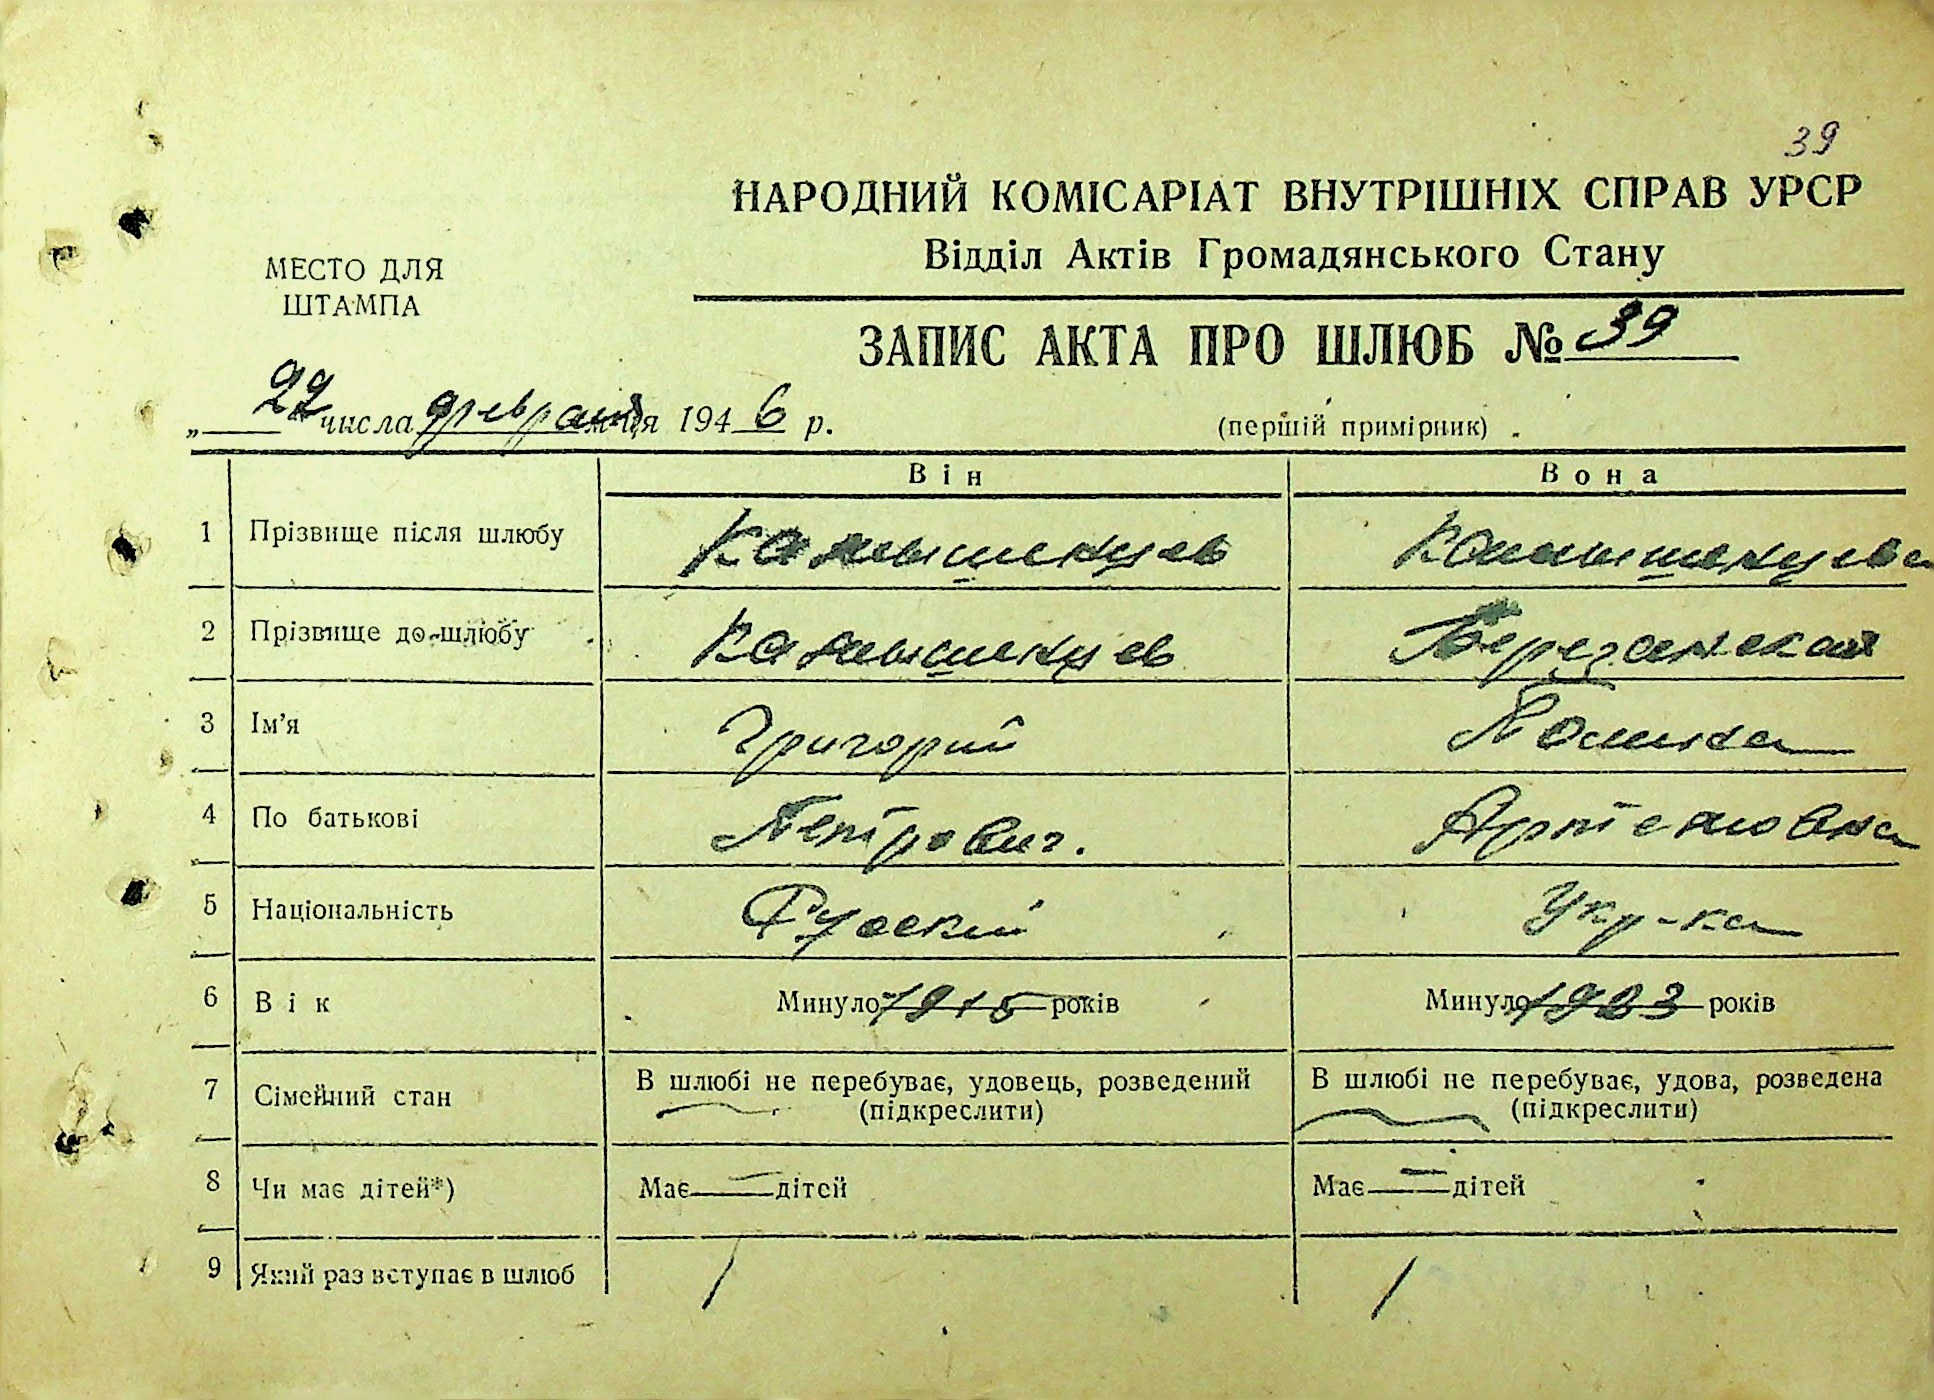 39
НАРОДНИЙ КОМІСАРІАТ ВНУТРІШНІХ СПРАВ УРСР
Відділ Актів Громадянського Стану
МЕСТО ДЛЯ
ШТАМПА
ЗАПИС АКТА ПРО ШЛЮБ № 39
„22" числа февраля м-ця 1946 р.
(перший примірник)
Він Вона
1 Прізвище після шлюбу Камышенцев Камышенцева
2 Прізвище до шлюбу Камышенцев Березанская
3 Ім'я Григорий Полина
4 По батькові Петрович. Артемовна
5 Національність Руский Укр-ка
6 Вік Минуло 1915 років Минуло 1923 років
7 Сімейний стан В шлюбі не перебуває, удовець, розведений В шлюбі не перебуває, удова, розведена
(підкреслити) (підкреслити)
8 Чи має дітей*) Має — дітей Має — дітей
9 Який раз вступає в шлюб 1 1